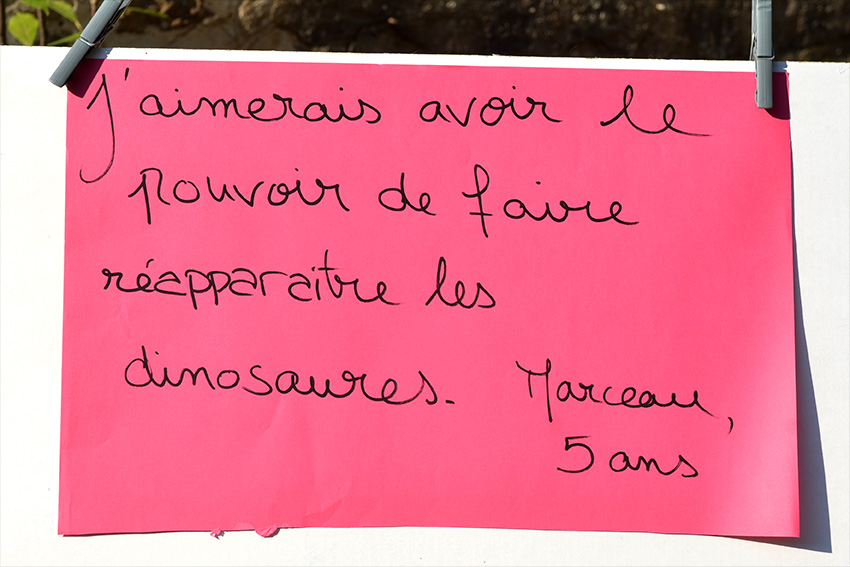 J'aimerais avoir le
pouvoir de faire
réapparaitre les
dinosaures. Marceau,
5 ans